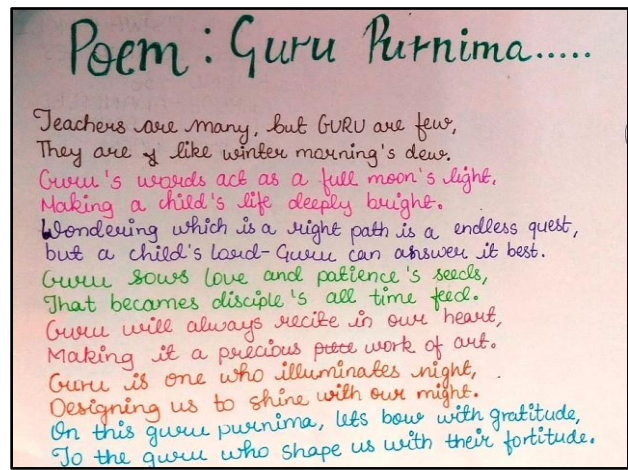 Poem : Guru Purnima.....
Teachers are many, but GURU are few,
They are like winter morning's dew.
Guru's words act as a full moon's light,
Making a child's life deeply bright.
Wondering which is a right path is a endless quest,
but a child's Lord-Guru can answer it best.
Guru sows love and patience's seeds,
That becames disciple's all time feed.
Guru will always recite in our heart,
Making it a precious work of art.
Guru is one who illuminates night,
Designing us to shine with our might.
On this guru purnima, lets bow with gratitude,
To the guru who shape us with their fortitude.